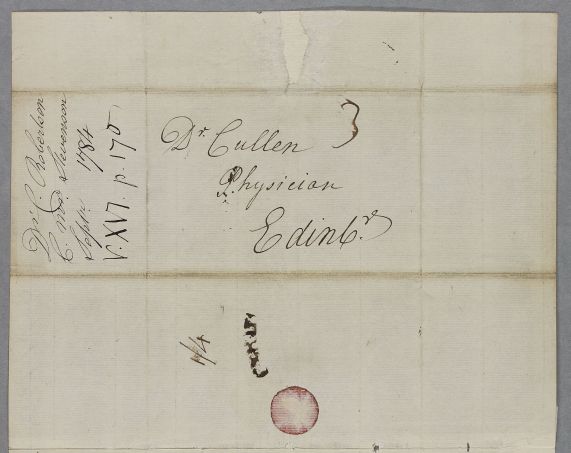 Dr. Cullen
Physician
Edinbr.
3
Dr. C. Robertson
C. Mrs Stevenson
Septr. 1784
V. XVI. p. 170.
1/4